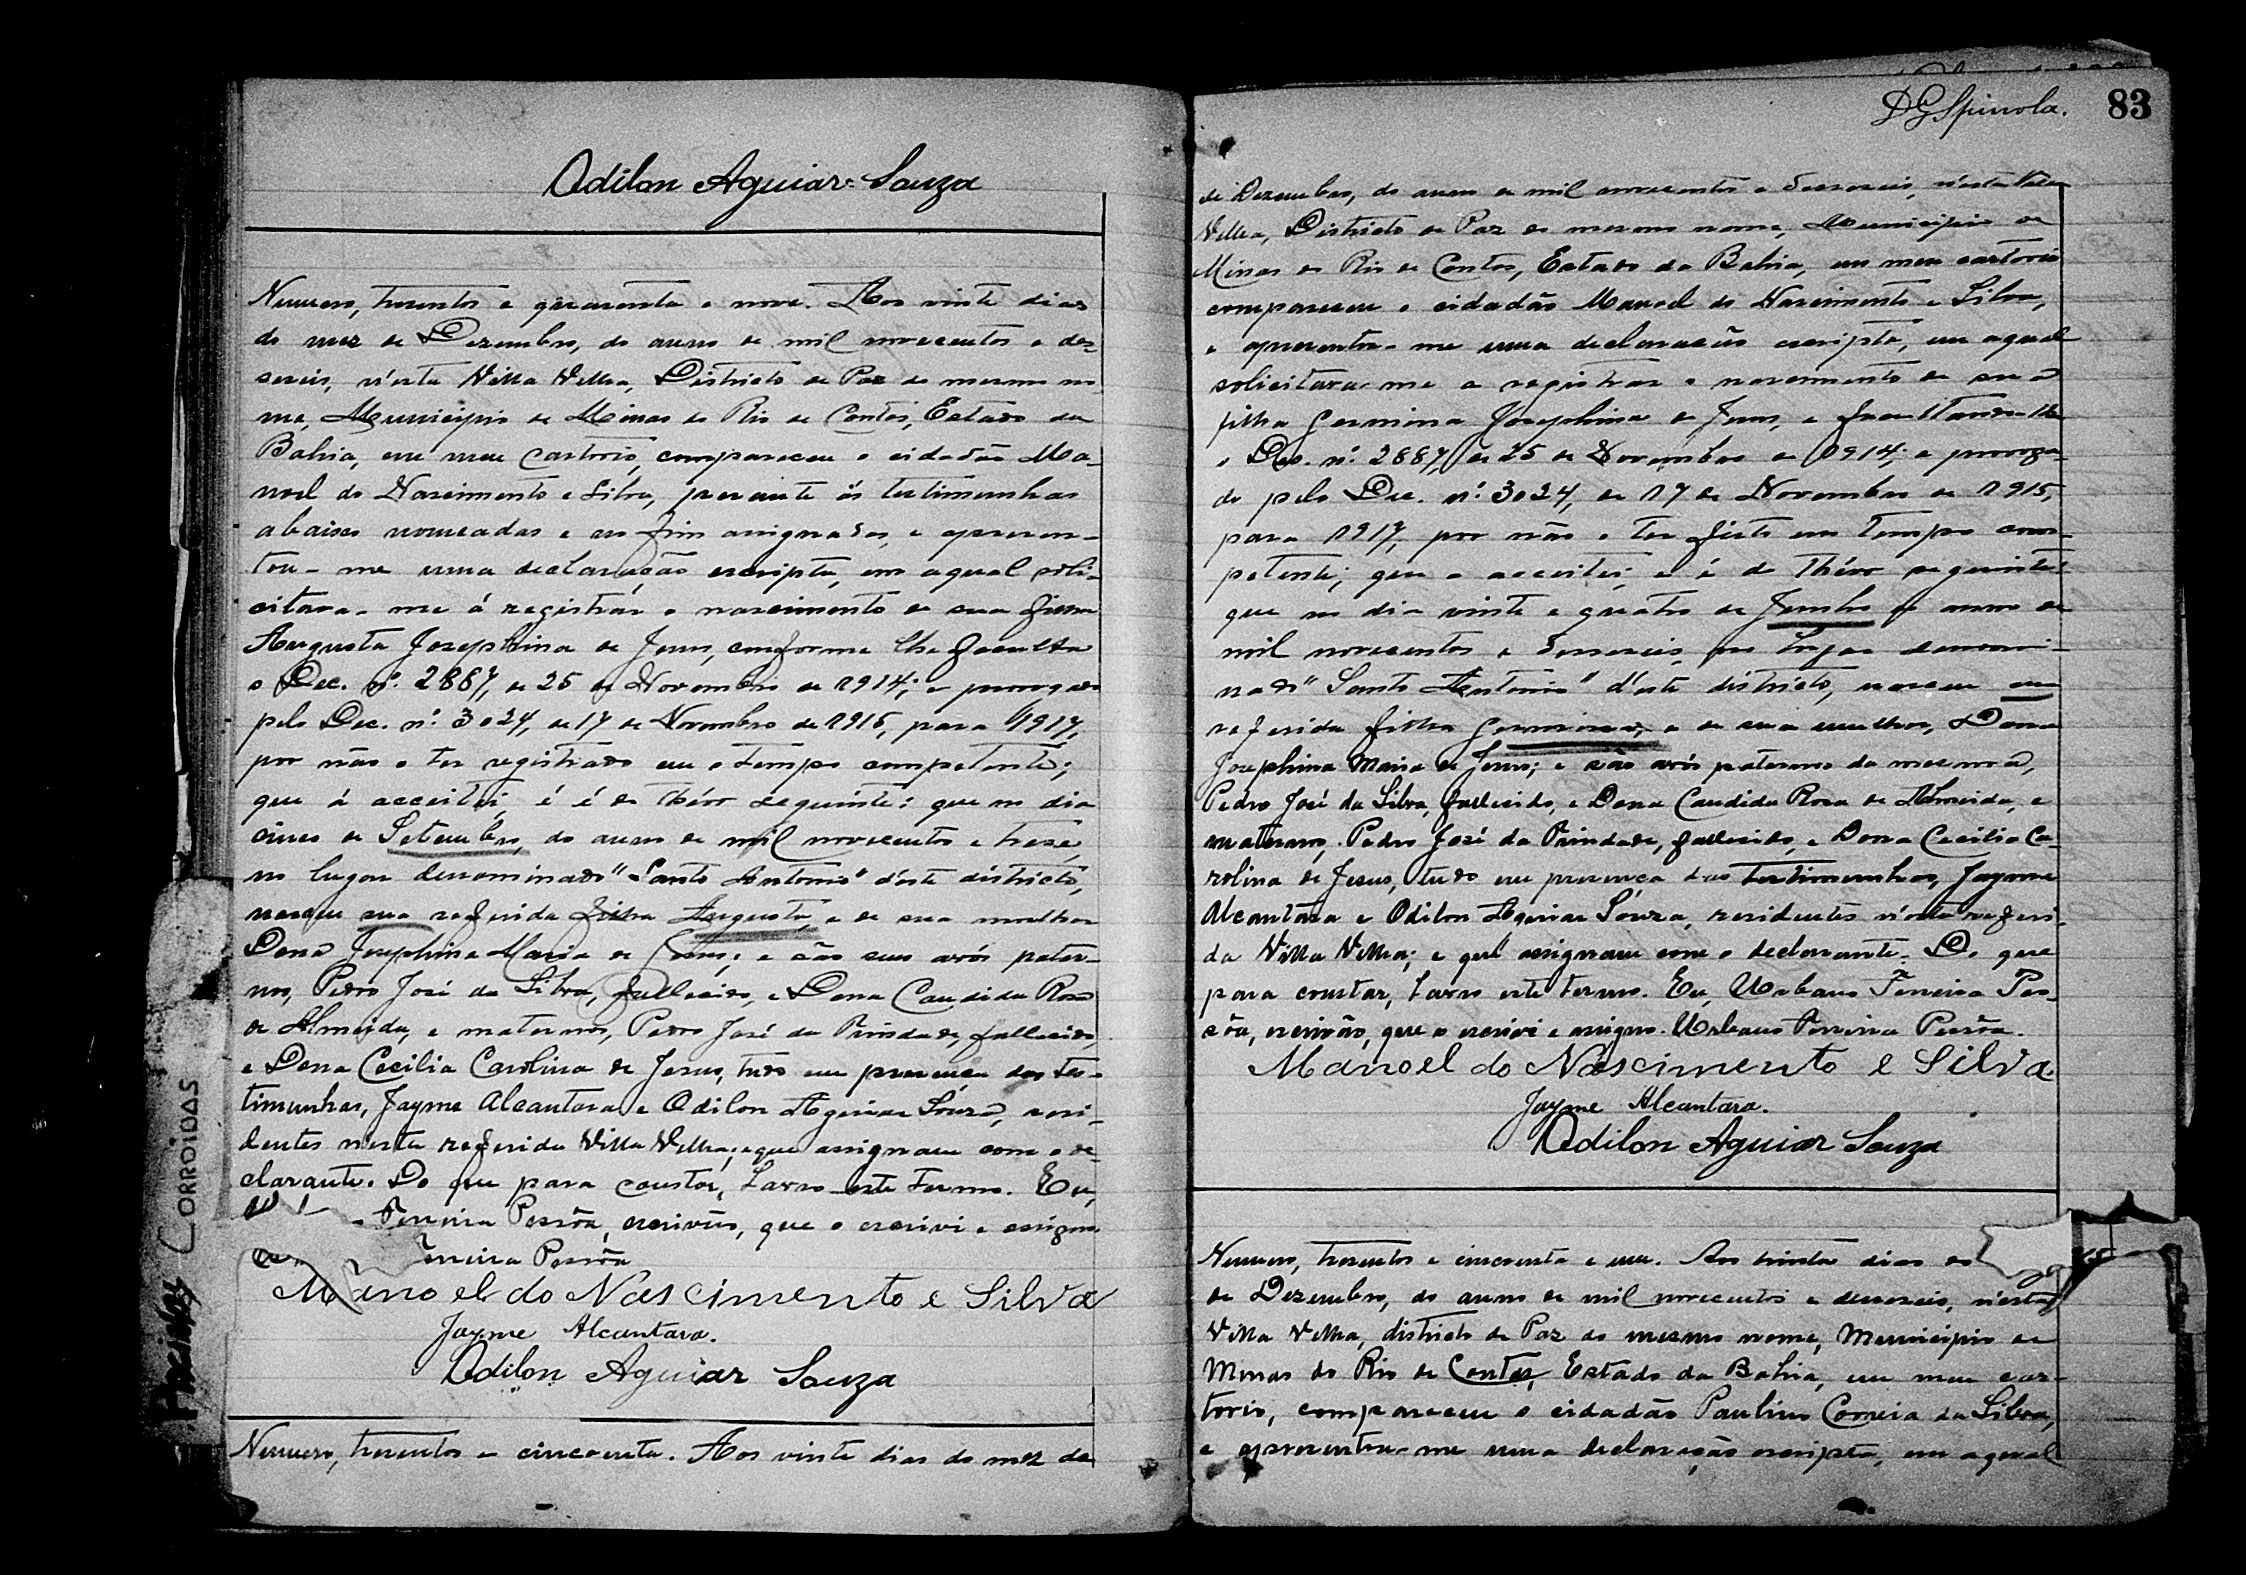 Odilon Aguiar Souza
Numero, trezentos e quarenta e nove. Aos vinte dias
do mez de Dezembro, do anno de mil novecentos e dez-
eseis, n'esta Villa Velha, Districto de Paz do mesmo no-
me, Municipio de Minas do Rio de Contas, Estado da
Bahia, em meu Cartorio, compareceu o cidadão Ma-
noel do Nascimento e Silva, perante ás testimunhas
abaixo nomeadas e no fim assignados, e apresen-
tou-me uma declaração escripta, em a qual soli-
citava-me á registrar o nascimento de sua filha
Augusta Josephina de Jesus, conforme lhe faculta
o Dec. nº. 2887, de 25 de Novembro de 1914; e prorogado
pelo Dec. nº. 3024, de 17 de Novembro de 1915, para 1917,
por não o ter registrado em o tempo competente;
que á acceitei, é é do théor seguinte: que no dia
cinco de Setembro, do anno de mil novecentos e treze,
no lugar denominado "Santo Antonio" d'este districto,
nasceu sua referida filha Augusta, e de sua mulher
Dona Josephina Maria de Jesus; e são seus avós pater-
nos, Pedro José da Silva, fallecido, e Dona Candida Rosa
de Almeida, e maternos, Pedro José da Trindade, fallecido,
e Dona Cecilia Carolina de Jesus, tudo em presença das tes-
timunhas, Jayme Alcantara e Odilon Aguiar Souza, resi-
dentes nesta referida Villa Velha; e que assignam com o de-
clarante. Do que para constar, Lavro este termo. Eu,
Ferreira Pessôa, escrivão, que o escrivi e assigno.
Ferreira Pessôa
Manoel do Nascimento e Silva
Jayme Alcantara.
Odilon Aguiar Souza
Numero, trezentos e cincoenta. Aos vinte dias do mez de
DGSpinola. 83
de Dezembro, do anno de mil novecentos e dezeseis, n'esta Villa
Velha, Districto de Paz do mesmo nome, Municipio de
Minas do Rio de Contas, Estado da Bahia, em meu cartorio
compareceu o cidadão Manoel do Nascimento e Silva,
e apresentou-me uma declaração escripta, em a qual
solicitava-me a registrar o nascimento de sua
filha Germina Josephina de Jesus, e facultando-lhe
o Dec. nº. 2887, de 25 de Novembro de 1914; e proroga-
do pelo Dec. nº. 3024, de 17 de Novembro de 1915,
para 1917, por não o ter feito em tempo com-
petente; que o acceitei, e é do théor seguinte:
que no dia vinte e quatro de Junho do anno de
mil novecentos e dezeseis, no lugar denomi-
nado "Santo Antonio" d'este districto, nasceu sua
referida filha Germina, e de sua mulher, Dona
Josephina Maria de Jesus; e são avós paternos da mesma,
Pedro José da Silva, fallecido, e Dona Candida Rosa de Almeida, e
maternos, Pedro José da Trindade, fallecido, e Dona Cecilia Ca-
rolina de Jesus, tudo em presença das testimunhas, Jayme
Alcantara e Odilon Aguiar Souza, residentes n'esta referi-
da Villa Velha; e que assignam com o declarante. Do que
para constar, Lavro este termo. Eu, Urbano Ferreira Pes-
sôa, escrivão, que o escrivi e assigno. Urbano Ferreira Pessôa.
Manoel do Nascimento e Silva
Jayme Alcantara.
Odilon Aguiar Souza
Numero, trezentos e cincoenta e um. Aos trinta dias do
de Dezembro, do anno de mil novecentos e dezeseis, n'esta
Villa Velha, districto de Paz do mesmo nome, Municipio de
Minas do Rio de Contas, Estado da Bahia, em meu car-
torio, compareceu o cidadão Paulino Correia da Silva,
e apresentou-me uma declaração escripta, em a qual
Paginas CORROIDAS